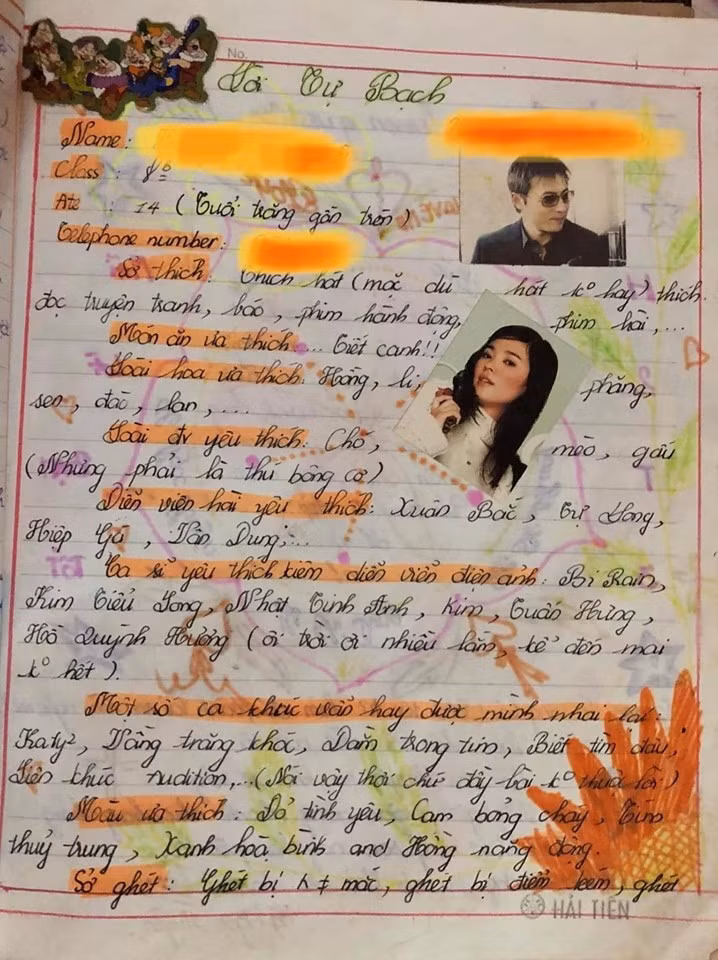 No.
Lời Tự Bạch
Name :
Class : 8⁶
Ate : 14 (Tuổi trăng gần tròn)
Telephone number :
Sở thích : thích hát (mặc dù hát k° hay) thích
đọc truyện tranh, báo, phim hành động, phim hài,...
Món ăn ưa thích... Tiết canh!!
Loài hoa ưa thích: Hồng, li, phăng,
sen, đào, lan,...
Loài đv yêu thích: Chó, mèo, gấu
(Nhưng phải là thú bông cơ)
Diễn viên hài yêu thích: Xuân Bắc, Tự Long,
Hiệp Gà, Vân Dung,...
Ca sĩ yêu thích kiêm diễn viên điện ảnh: Bi Rain,
Kim Tiểu Long, Nhật Tinh Anh, Kim, Tuấn Hưng,
Hồ Quỳnh Hương (ôi trời ơi nhiều lắm, kể đến mai
k° hết).
Một số ca khúc vẫn hay được mình nhai lại:
Katy², Vầng trăng khóc, Dằm trong tim, Biết tìm đâu,
Liên khúc rudition,...(Nói vậy thôi chứ đầy bài k° thuộc lời)
Màu ưa thích : Đỏ tình yêu, Cam bỏng cháy, Tím
thuỷ trung, Xanh hoà bình and Hồng năng động.
Sở ghét : Ghét bị ≠ mắc, ghét bị điểm kém, ghét
HẢI TIẾN